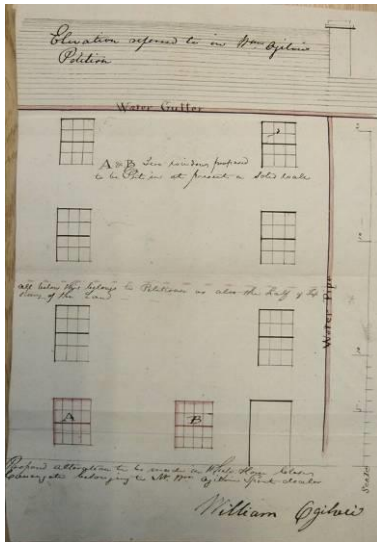 Elevation referred to in Wm Ogilvie
Petition
Water Gutter
A & B Two windows proposed
to be Put in at present a Solid wall
all below this belongs to Petitioner as also the half of
of the Land
Water Pipe
A
B
Proposed alteration to be made on House
Canongate belonging to Mr Wm Ogilvie Spirit dealer
Scale
William Ogilvie